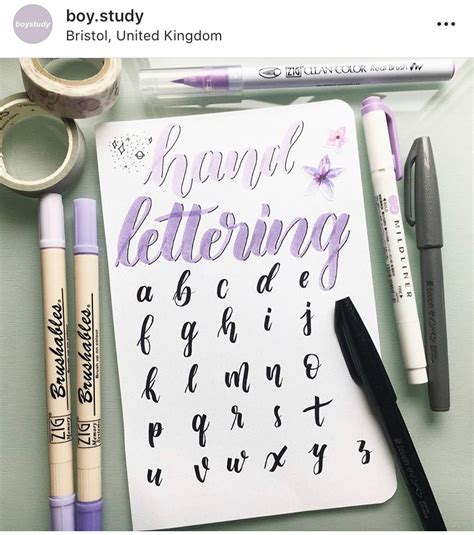 boystudy
boy.study
Bristol, United Kingdom
ZIG CLEAN COLOR Real Brush
hand
lettering
a b c d e
f g h i j
k l m n o
p q r s t
u v w x y z
MILDLINER
ZIG Brushables
ZIG Brushables